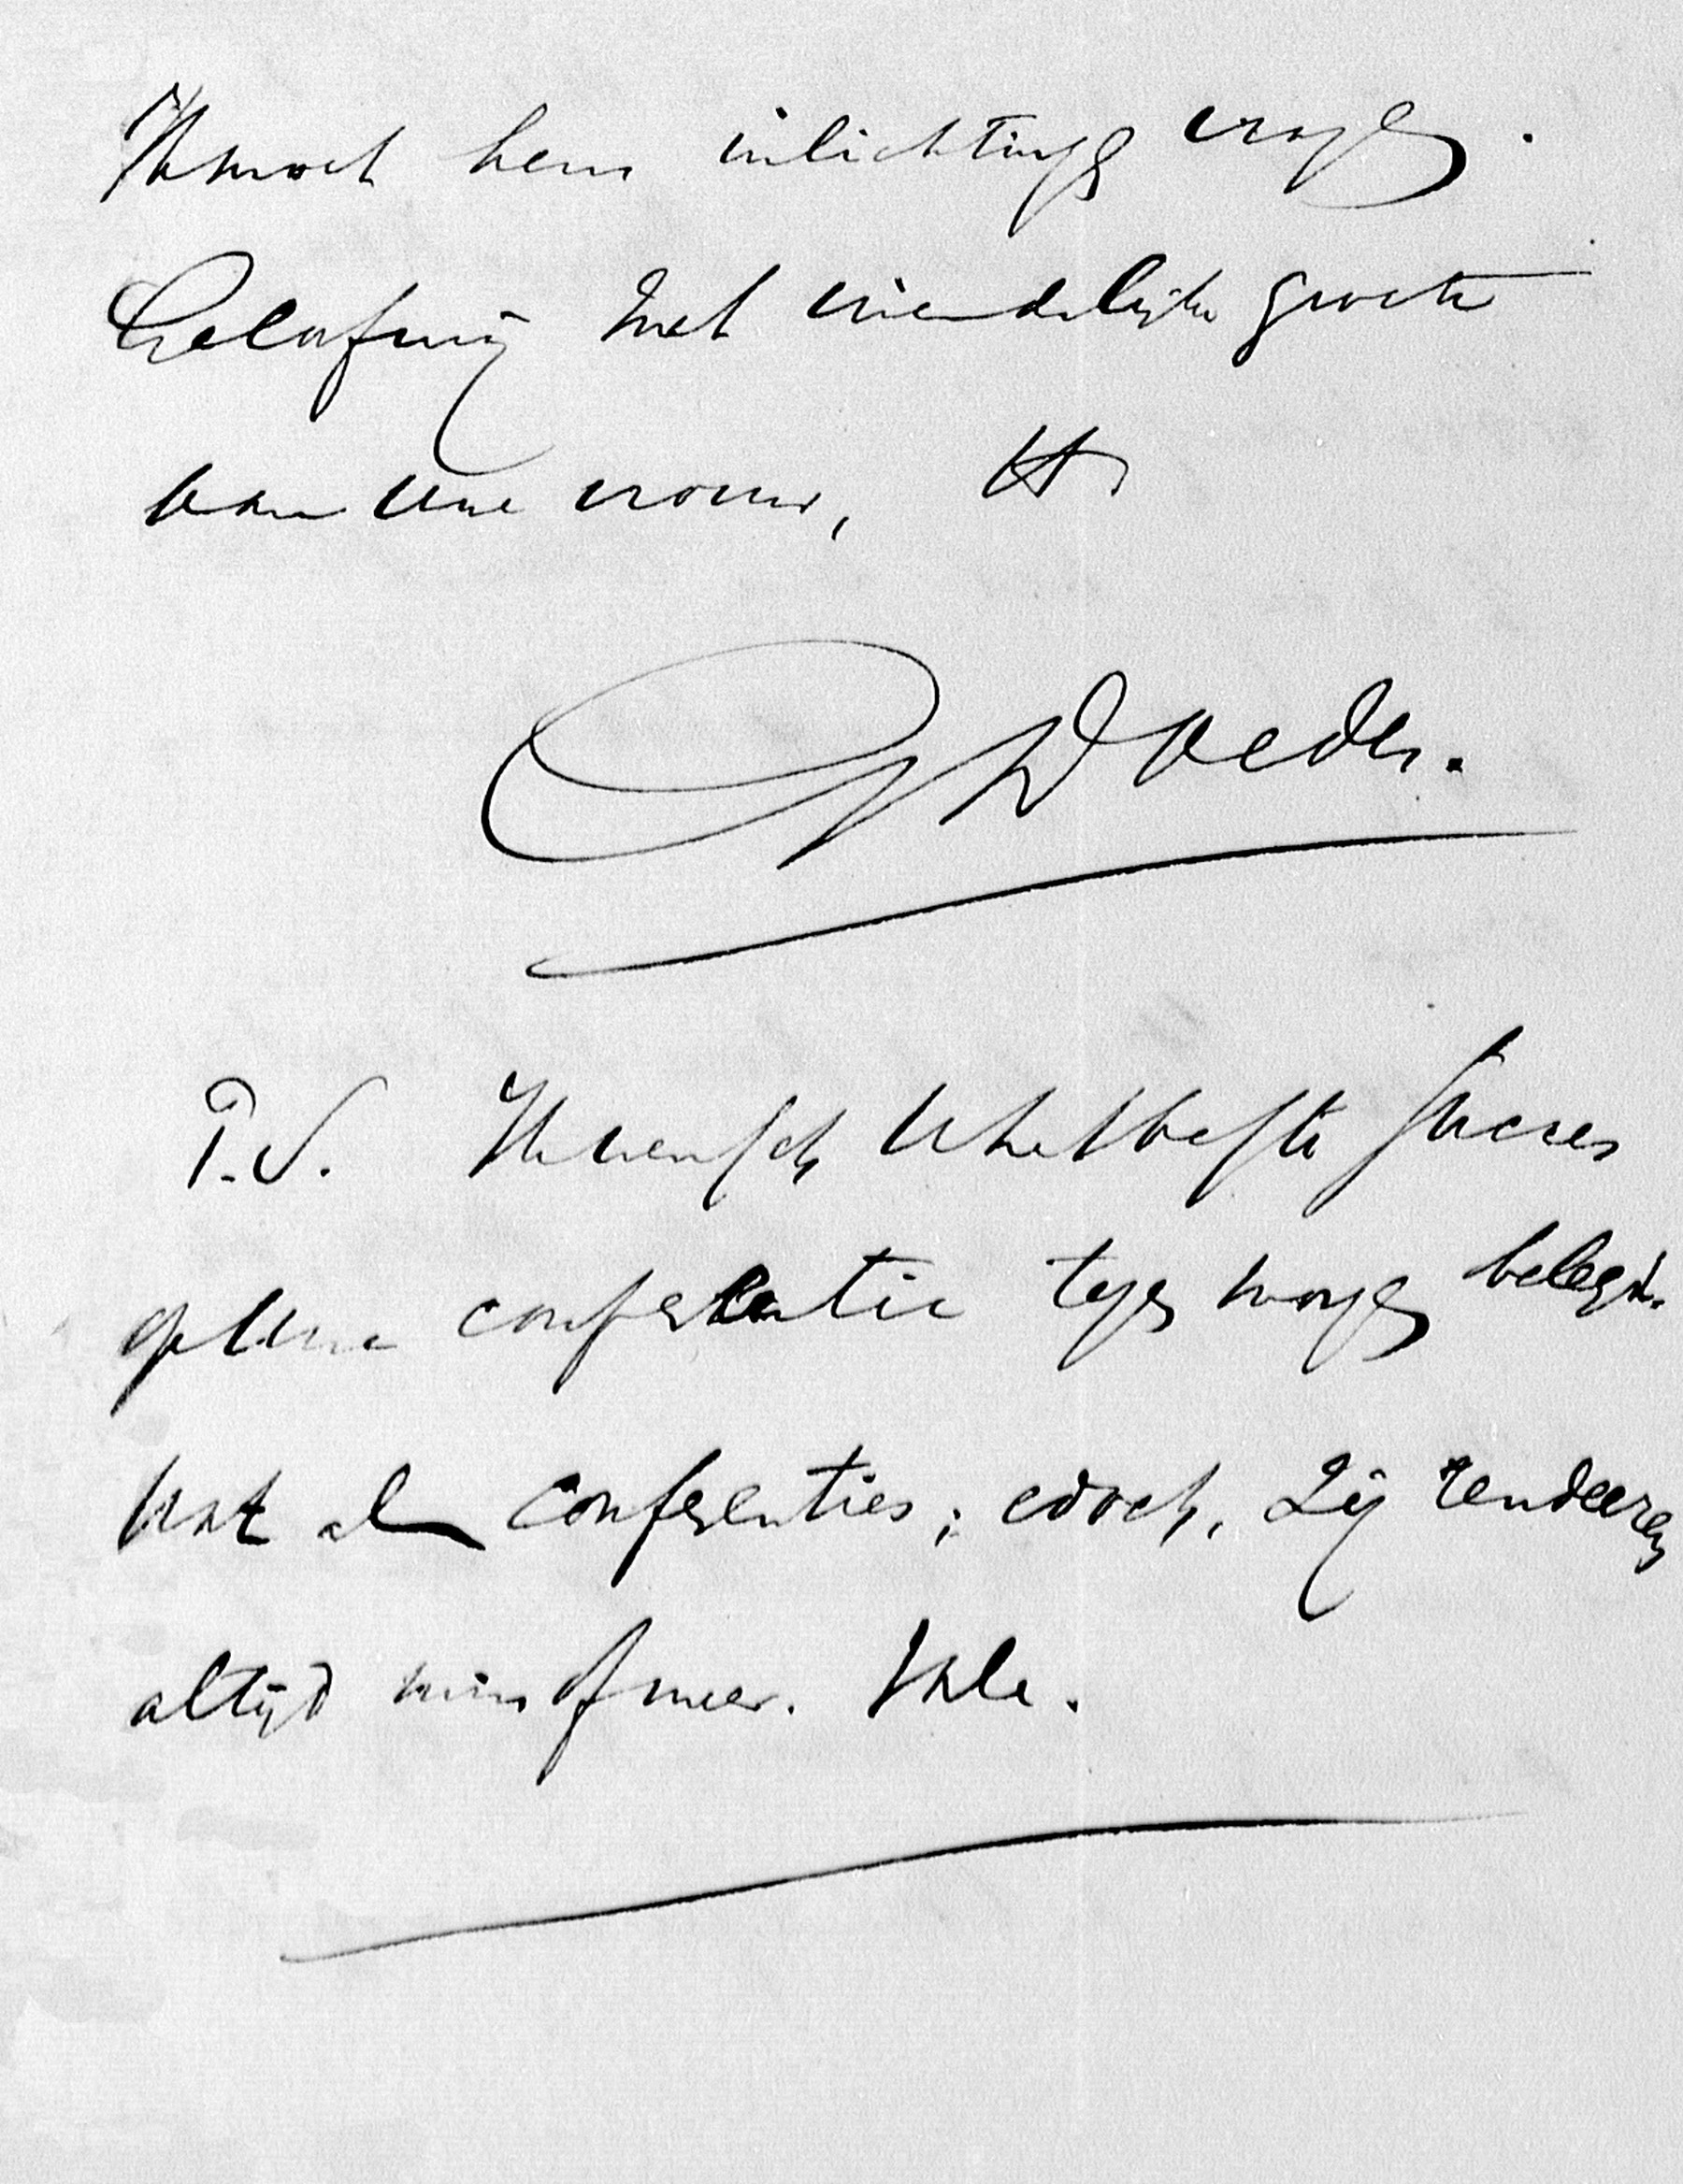 Ik moet hem inlichtingen vragen.
Geloof mij met vriendelijke groete
van Uwe vrouw,
Doedes.
P.S. Ik wensch U het beste succes
op Uwe conferentie tegen morgen belegd.
Wat al conferenties; edoch, zij rendeeren
altijd min of meer. Vale.